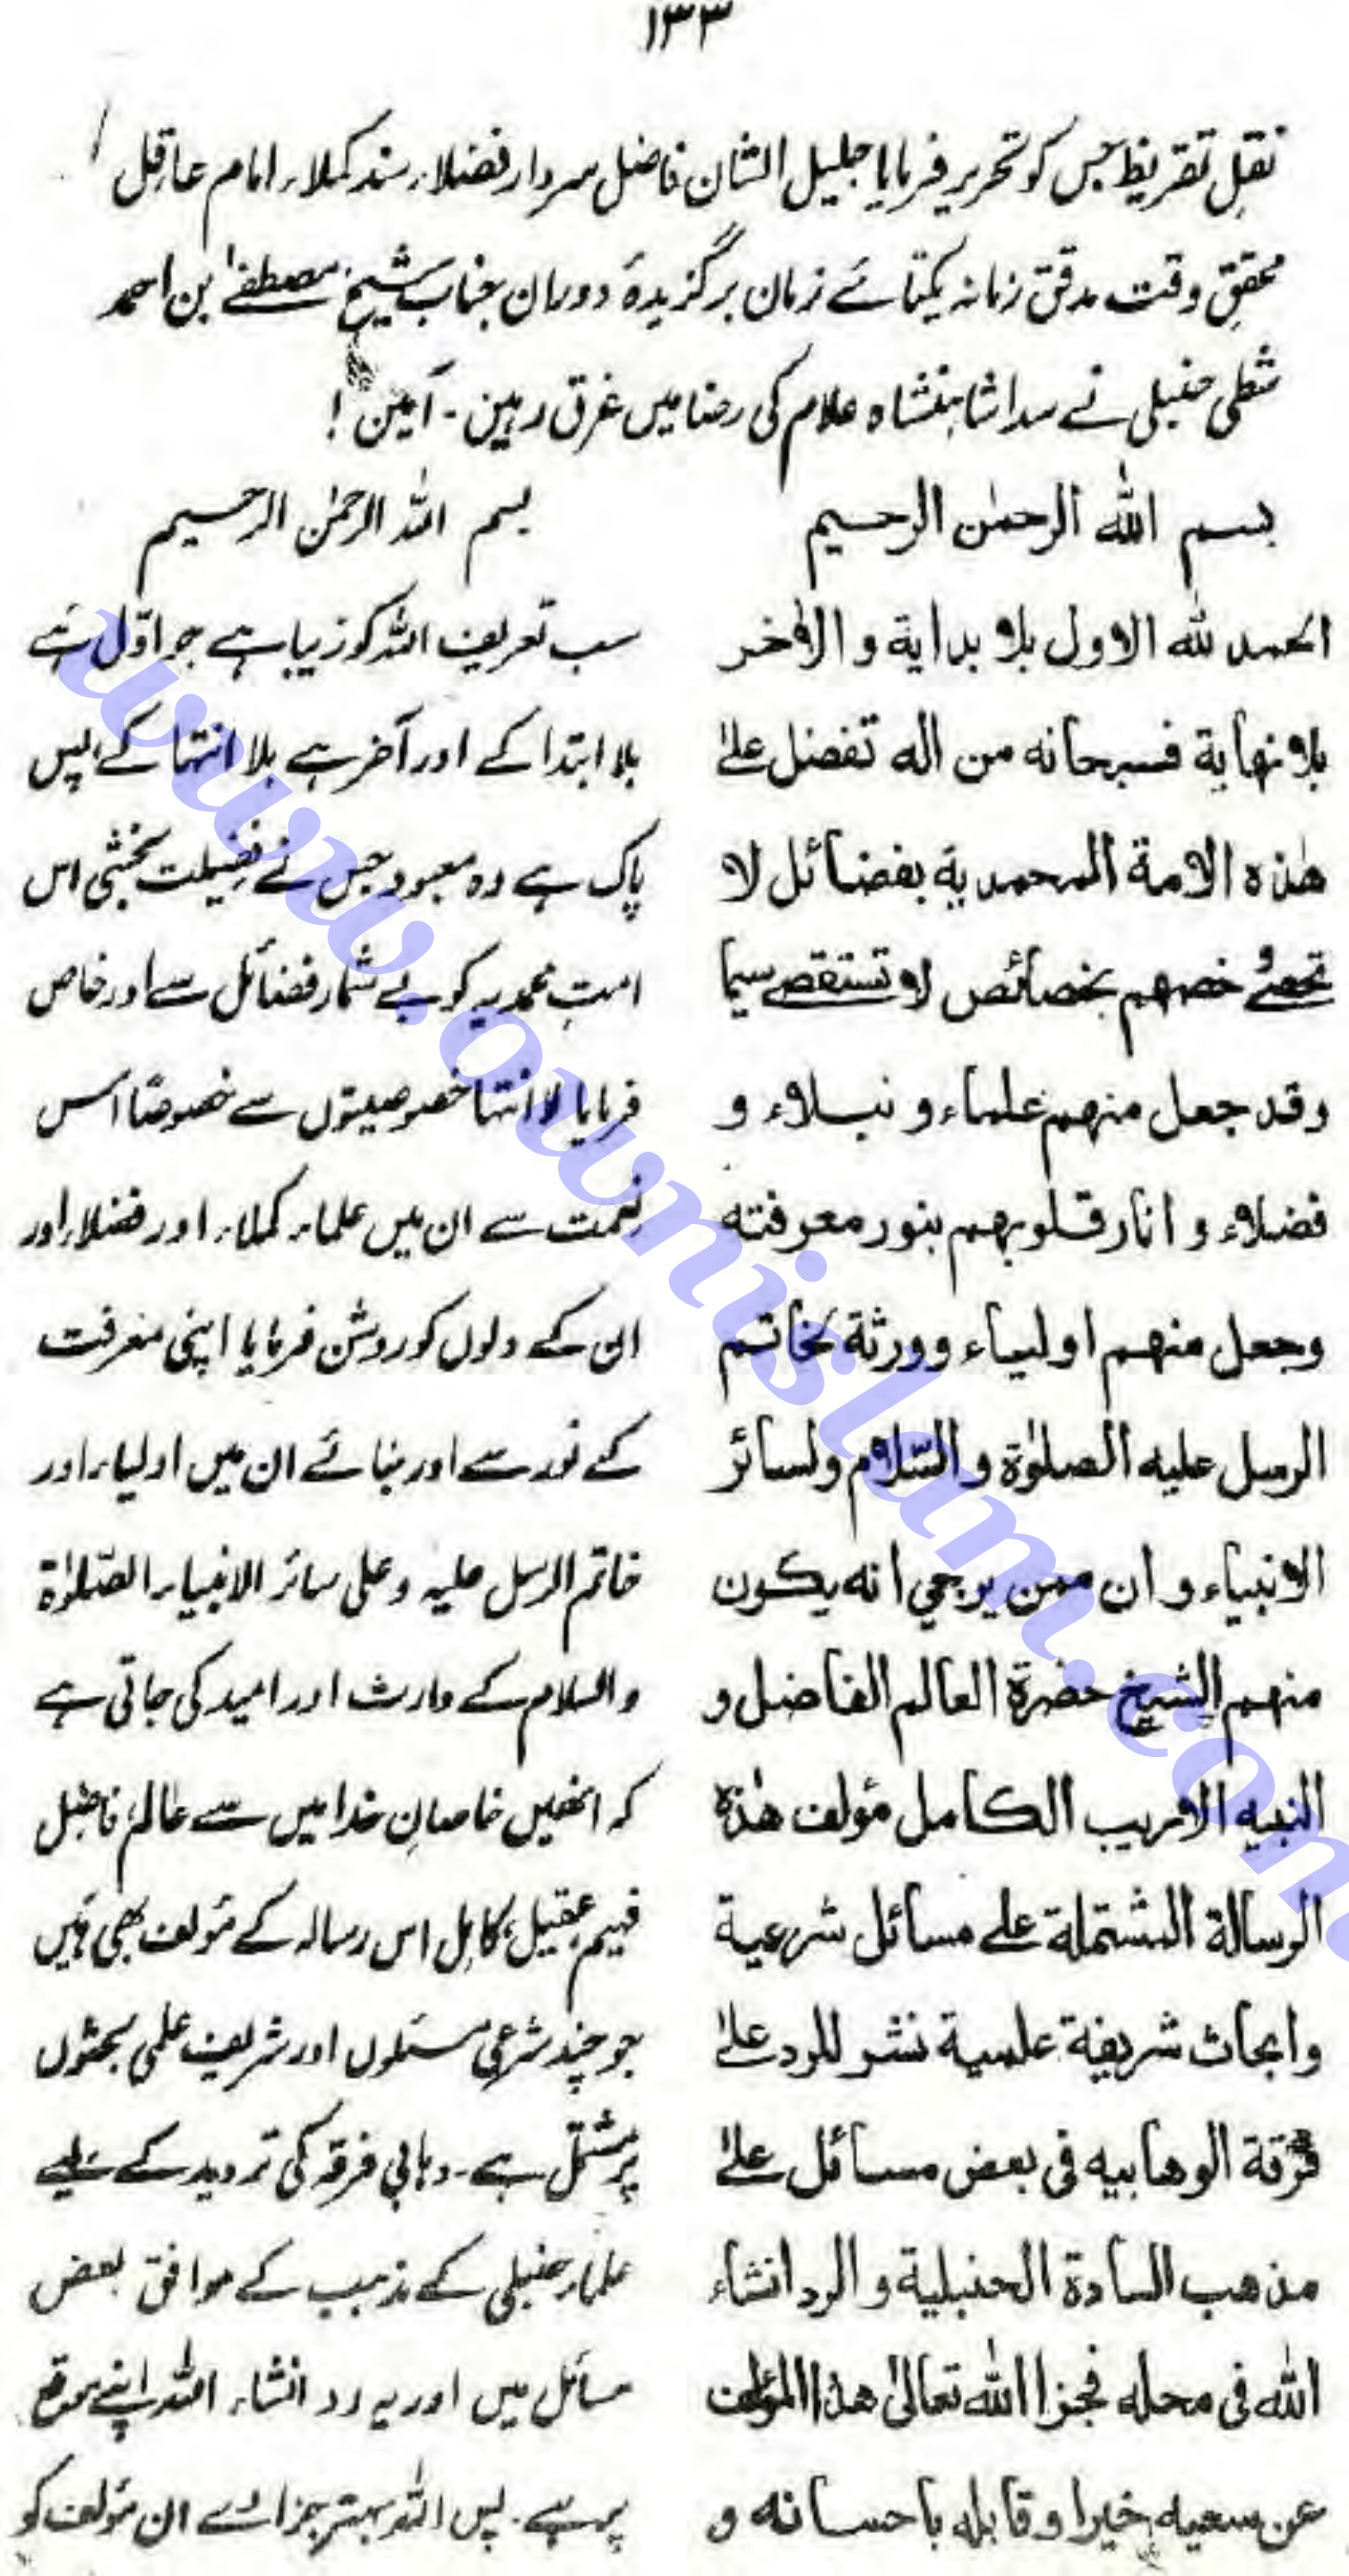 ۱۳۳
نقلِ تقریظ جس کو تحریر فرمایا جلیل الشان فاضل سردار فضلاء سند کملاء امام عاقل
محققِ وقت مدقق زمانہ یکتائے زمان برگزیدۂ دوران جناب شیخ مصطفےٰ بن احمد
شطی حنبلی نے سدا شاہنشاہ علام کی رضا میں غرق رہیں - آمین !
بسم الله الرحمٰن الرحیم
الحمد لله الاول بلا بدایة و الاٰخر
بلا نهایة فسبحانه من اله تفضل علےٰ
هٰذه الامة المحمدیة بفضائل لا
تحصےٰ خصهم بخصائص لا تستقصے سیما
وقد جعل منهم علماء و نبلاء و
فضلاء و انار قلوبهم بنور معرفته
وجعل منهم اولیاء و ورثة لخاتم
الرسل علیه الصلوٰة و السّلام ولسائر
الانبیاء و ان ممن یرجی انه یکون
منهم الشیخ حضرة العالم الفاضل و
النبیه الاریب الکامل مؤلف هٰذه
الرسالة المشتملة علے مسائل شرعیة
وابحاث شریفة علمیة نشر للرد علےٰ
فرقة الوهابیه فی بعض مسائل علےٰ
مذهب السادة الحنبلیة و الرد انشاء
الله فی محله فجزا الله تعالیٰ هذا المؤلف
عن سعیه خیرا و قابله باحسانه و
بسم اللہ الرحمٰن الرحیم
سب تعریف اللہ کو زیبا ہے جو اوّل ہے
بلا ابتدا کے اور آخر ہے بلا انتہا کے پس
پاک ہے وہ معبود جس نے فضیلت بخشی اس
امتِ محمدیہ کو بے شمار فضائل سے اور خاص
فرمایا لا انتہا خصوصیتوں سے خصوصًا اس
نعمت سے ان میں علماء کملاء اور فضلاء اور
ان کے دلوں کو روشن فرمایا اپنی معرفت
کے نور سے اور بنائے ان میں اولیاء اور
خاتم الرسل علیہ وعلی سائر الانبیاء الصّلوٰة
والسلام کے وارث اور امید کی جاتی ہے
کہ انھیں خاصانِ خدا میں سے عالم فاضل
فہیم عقیل کامل اس رسالہ کے مؤلف بھی ہیں
جو چند شرعی مسئلوں اور شریف علمی بحثوں
پر مشتمل ہے۔ وہابی فرقہ کی تردید کے لیے
علماء حنبلی کے مذہب کے موافق بعض
مسائل میں اور یہ رد انشاء اللہ اپنے موقع
پر ہے۔ پس اللہ بہتر جزا دے ان مؤلف کو
www.ownislam.com